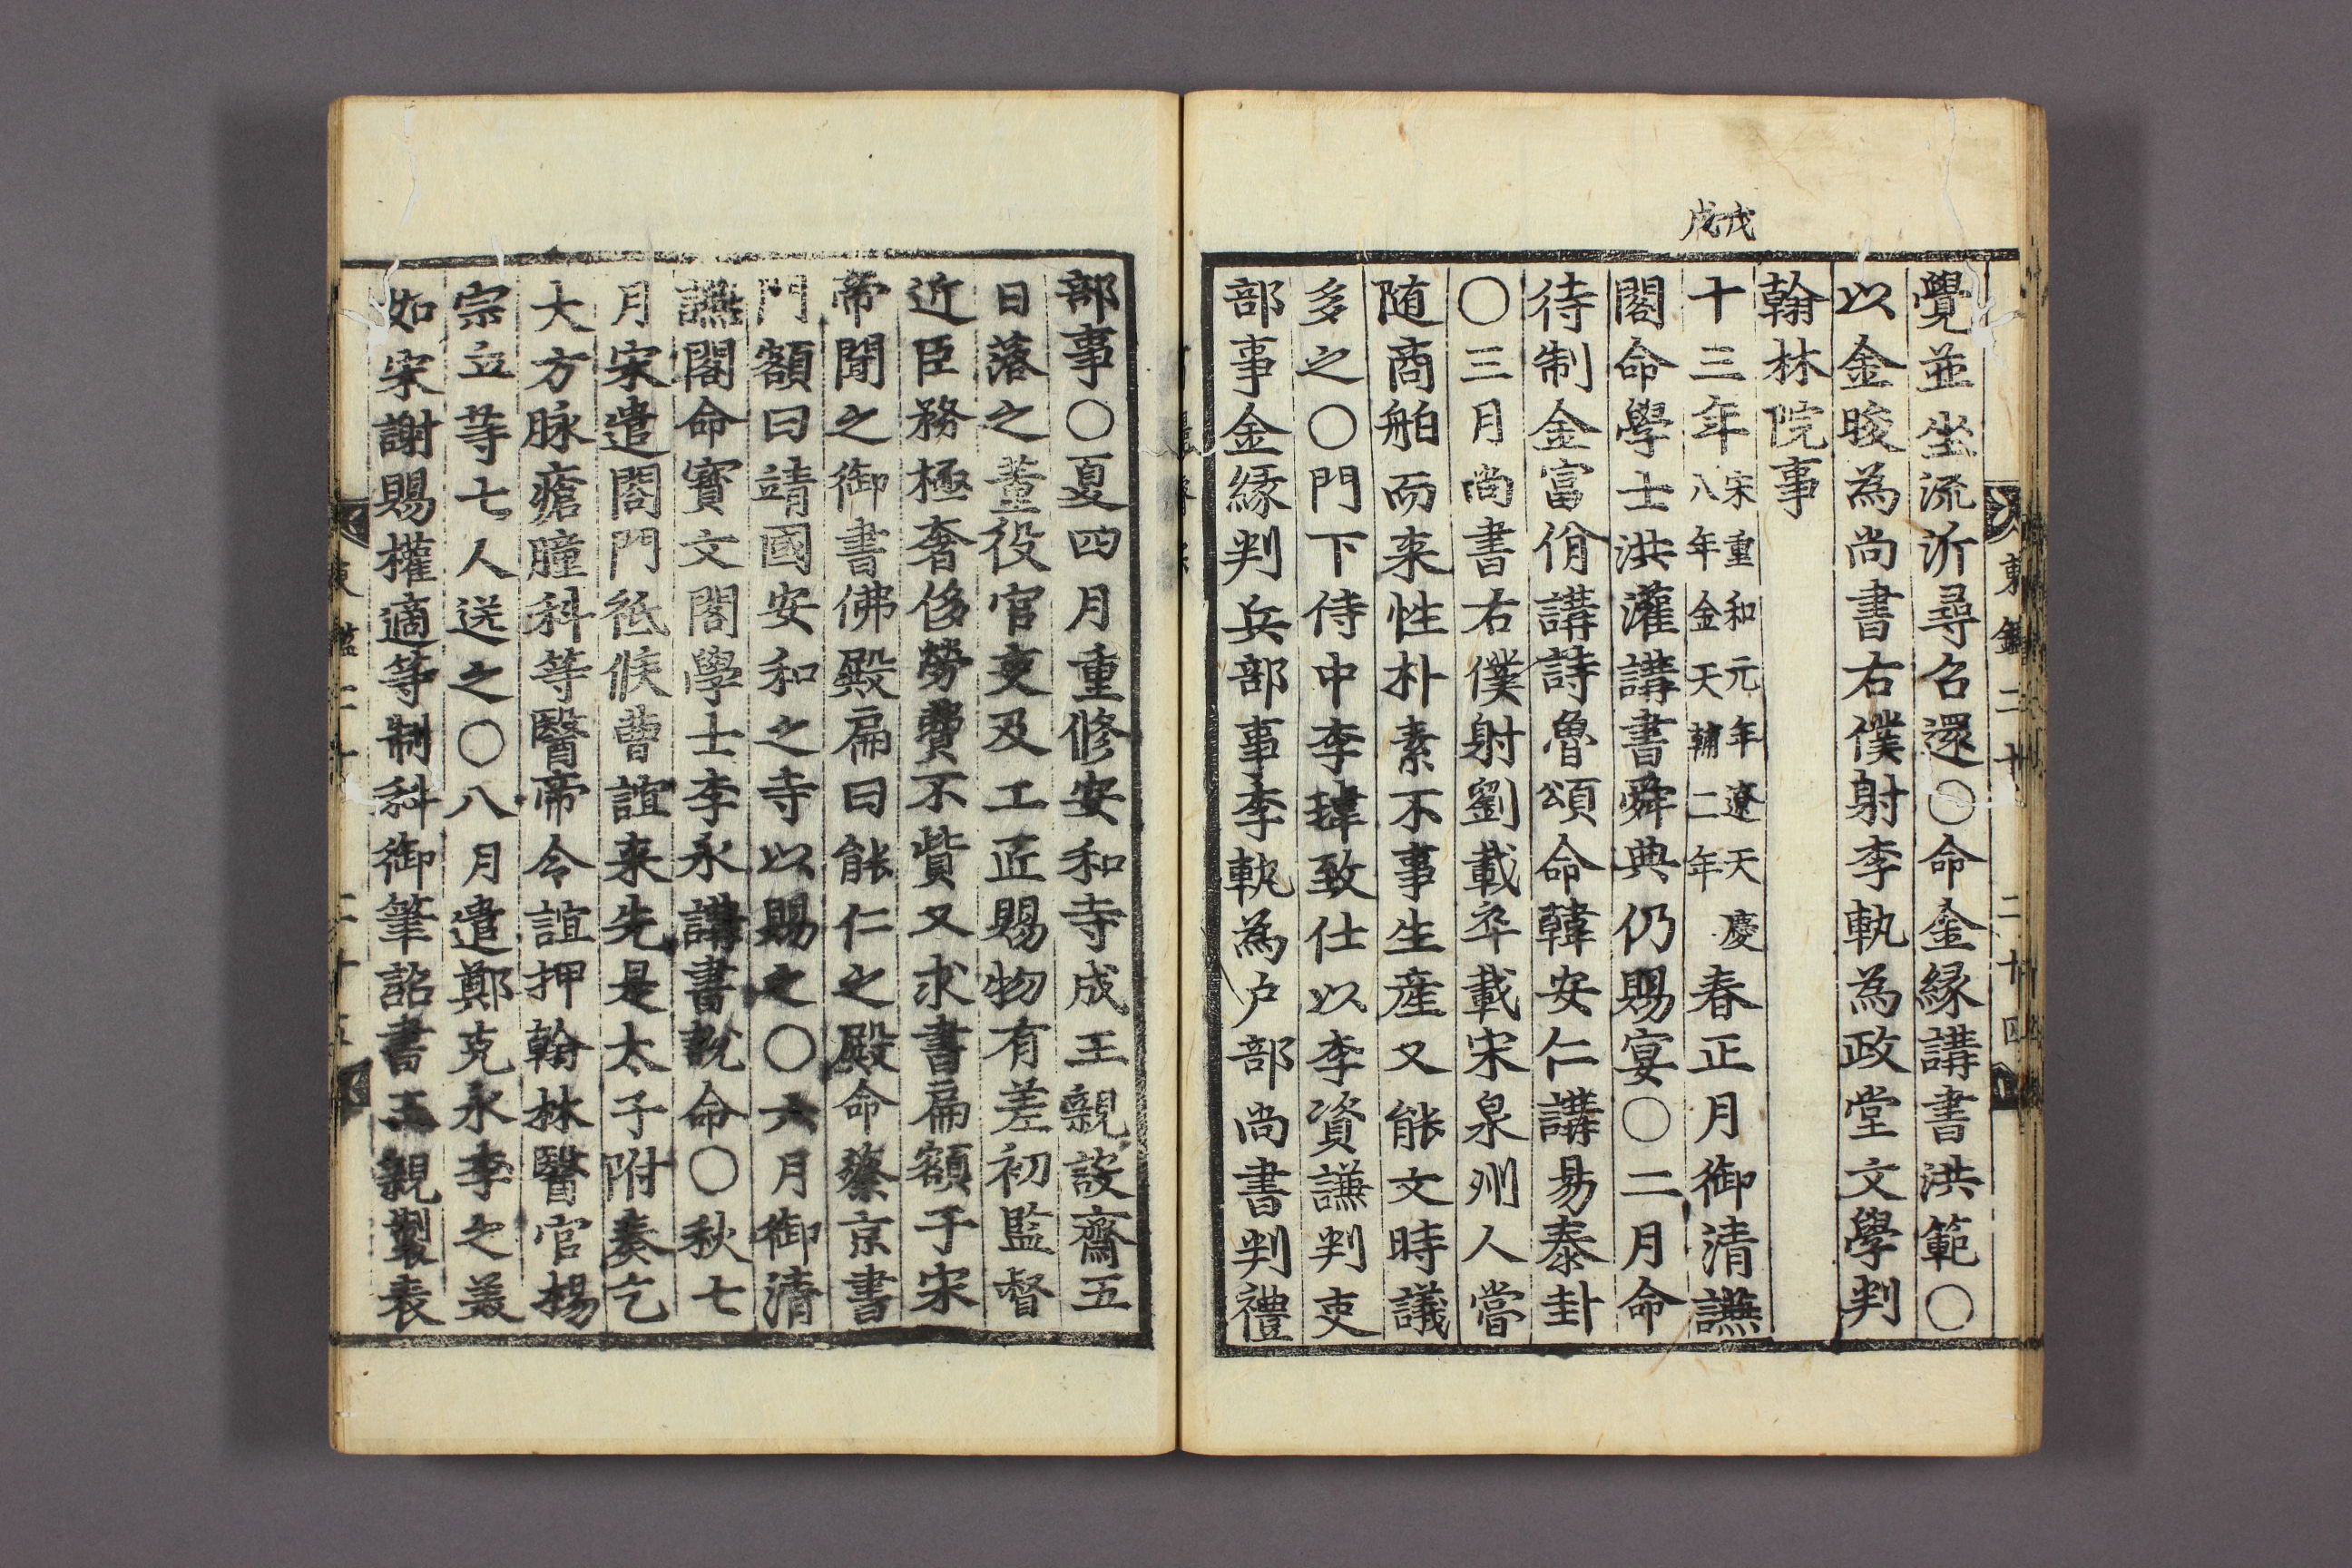 戊戌
覺並坐流沂尋召還○命金縁講書洪範○
以金晙為尚書右僕射李軌為政堂文學判
翰林院事
十三年宋重和元年遼天慶八年金天輔二年春正月御清讌
閣命學士洪灌講書舜典仍賜宴○二月命
待制金富佾講詩魯頌命韓安仁講易泰卦
○三月尚書右僕射劉載卒載宋泉州人嘗
随商舶而来性朴素不事生産又能文時議
多之○門下侍中李瑋致仕以李資謙判吏
部事金縁判兵部事李軌為户部尚書判禮
部事○夏四月重修安和寺成王親設齋五
日落之董役官吏及工匠賜物有差初監督
近臣務極奢侈勞費不貲又求書扁額于宋
帝聞之御書佛殿扁曰能仁之殿命蔡京書
門額曰靖國安和之寺以賜之○六月御清
讌閣命寳文閣學士李永講書說命○秋七
月宋遣閤門祗候曹誼来先是太子附奏乞
大方脉瘡腫科等醫帝令誼押翰林醫官楊
宗立等七人送之○八月遣鄭克永李之美
如宋謝賜權適等制科御筆詔書王親製表
東鑑二十 二十四
東鑑二十 二十五